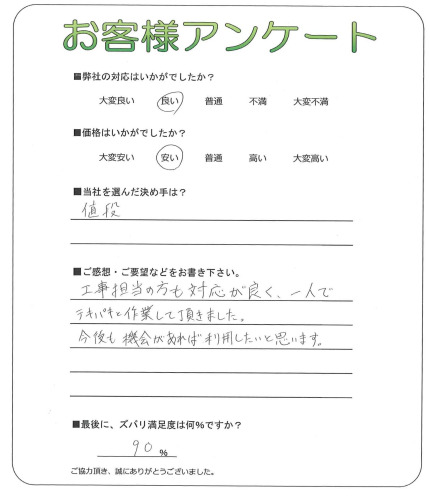 お客様アンケート
■弊社の対応はいかがでしたか？
大変良い 良い 普通 不満 大変不満
■価格はいかがでしたか？
大変安い 安い 普通 高い 大変高い
■当社を選んだ決め手は？
値段
■ご感想・ご要望などをお書き下さい。
工事担当の方も対応が良く、一人で
テキパキと作業して頂きました。
今後も機会があれば利用したいと思います。
■最後に、ズバリ満足度は何%ですか？
90 %
ご協力頂き、誠にありがとうございました。